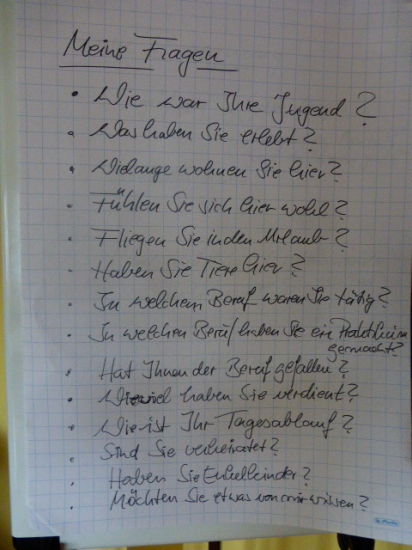 Meine Fragen
• Wie war Ihre Jugend?
• Was haben Sie erlebt?
• Wielange wohnen Sie hier?
• Fühlen Sie sich hier wohl?
• Fliegen Sie in den Urlaub?
• Haben Sie Tiere hier?
• In welchem Beruf waren Sie tätig?
• In welchen Beruf haben Sie ein Praktikum
gemacht?
• Hat Ihnen der Beruf gefallen?
• Wieviel haben Sie verdient?
• Wie ist Ihr Tagesablauf?
• Sind Sie verheiratet?
• Haben Sie Enkelkinder?
• Möchten Sie etwas von mir wissen?